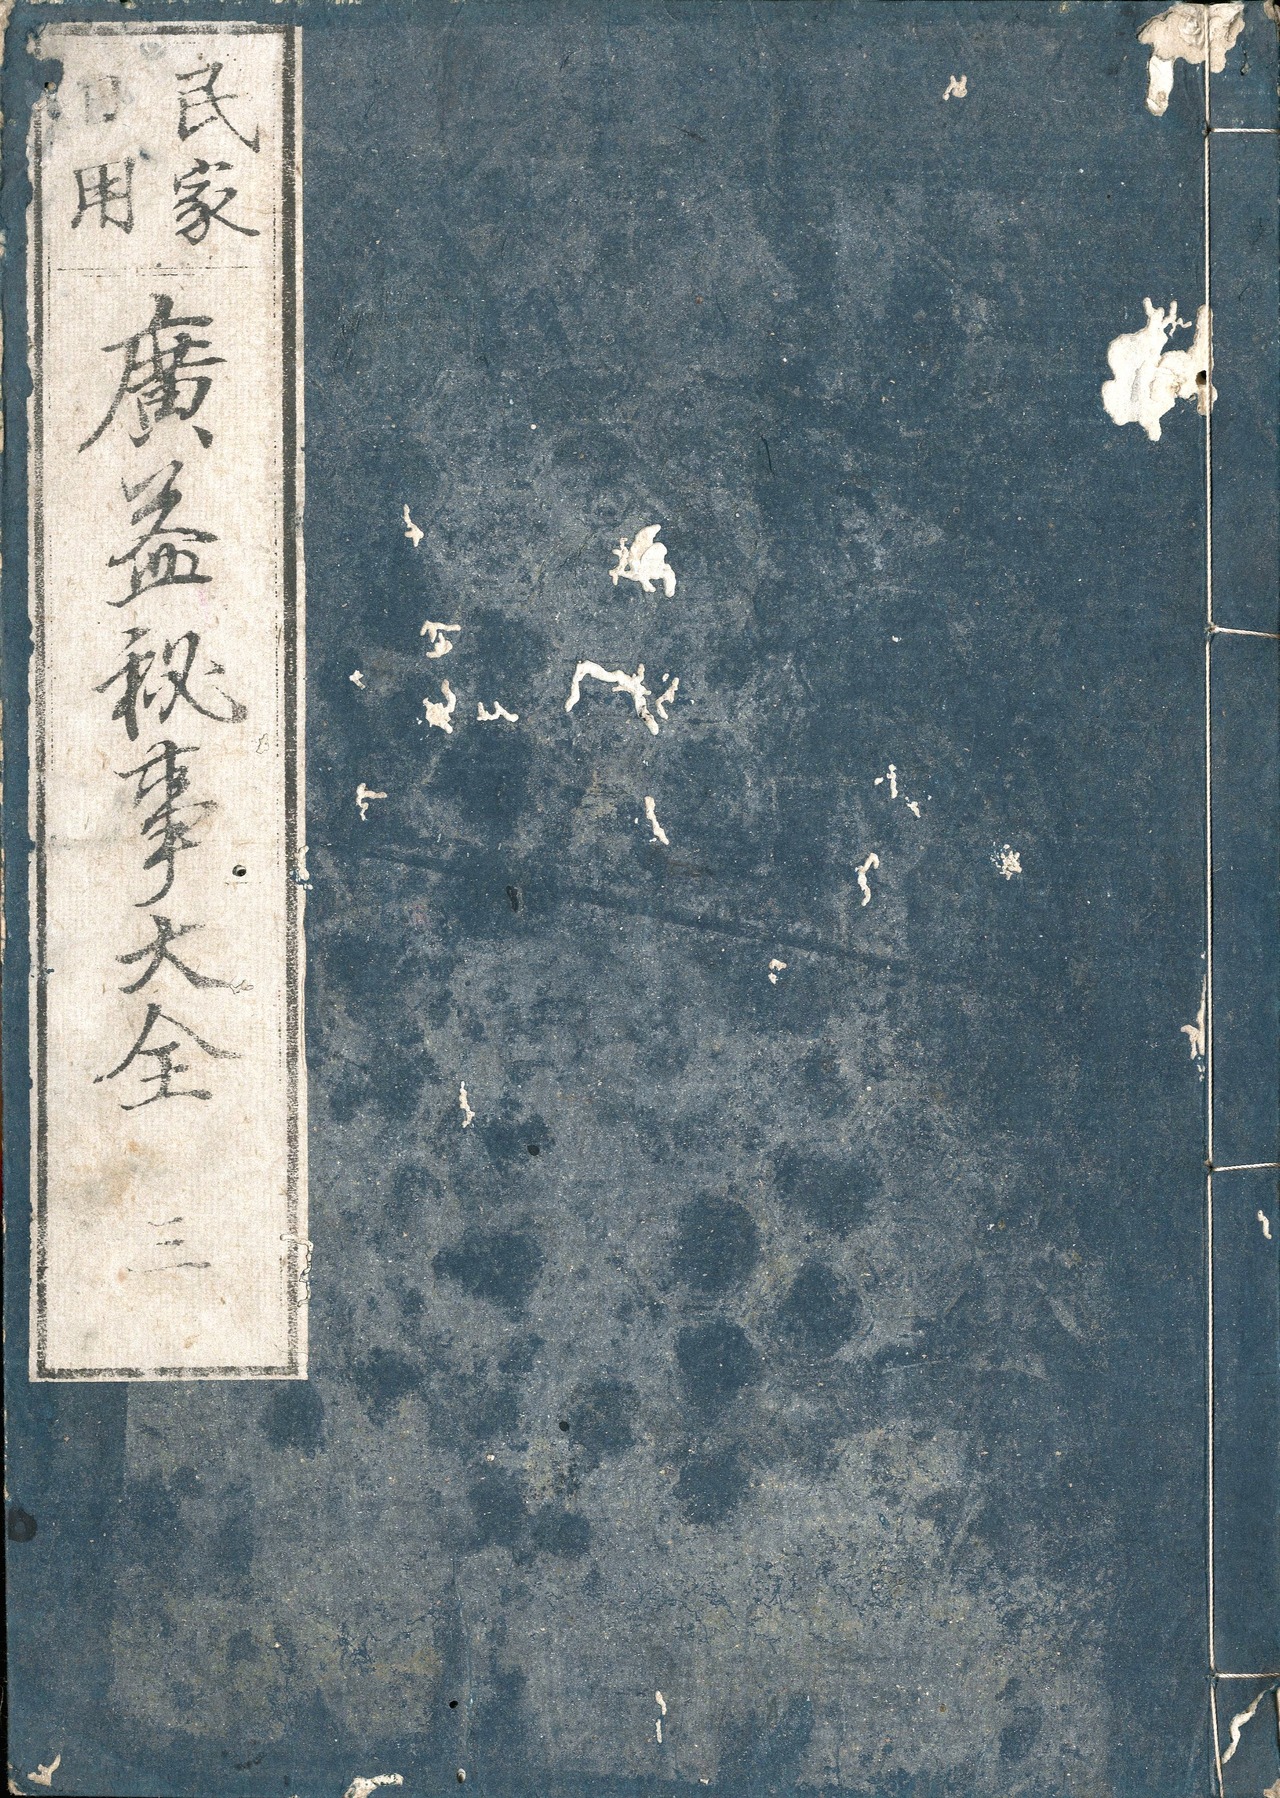 民家
日用
廣益秘事大全
三